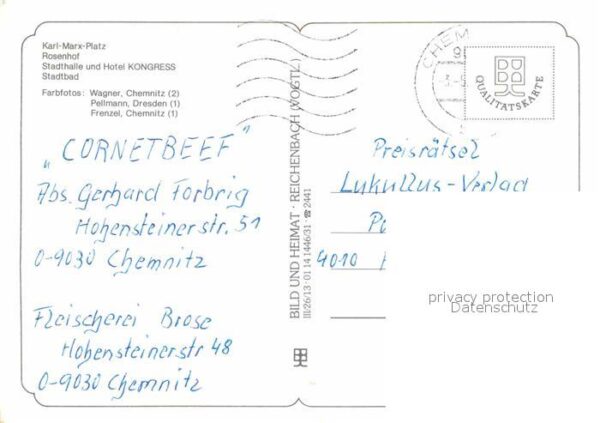 Karl-Marx-Platz
Rosenhof
Stadthalle und Hotel KONGRESS
Stadtbad
Farbfotos: Wagner, Chemnitz (2)
Pellmann, Dresden (1)
Frenzel, Chemnitz (1)
„CORNETBEEF"
Abs. Gerhard Forbrig
Hohensteinerstr. 51
O-9030 Chemnitz
Fleischerei Brose
Hohensteinerstr 48
O-9030 Chemnitz
BILD UND HEIMAT · REICHENBACH (VOGTL)
III/26/13 · 01 14 1446/31 · ☎ 2441
CHEM
QUALITÄTSKARTE
Preisrätsel
Lukullus-Verlag
4010
privacy protection
Datenschutz